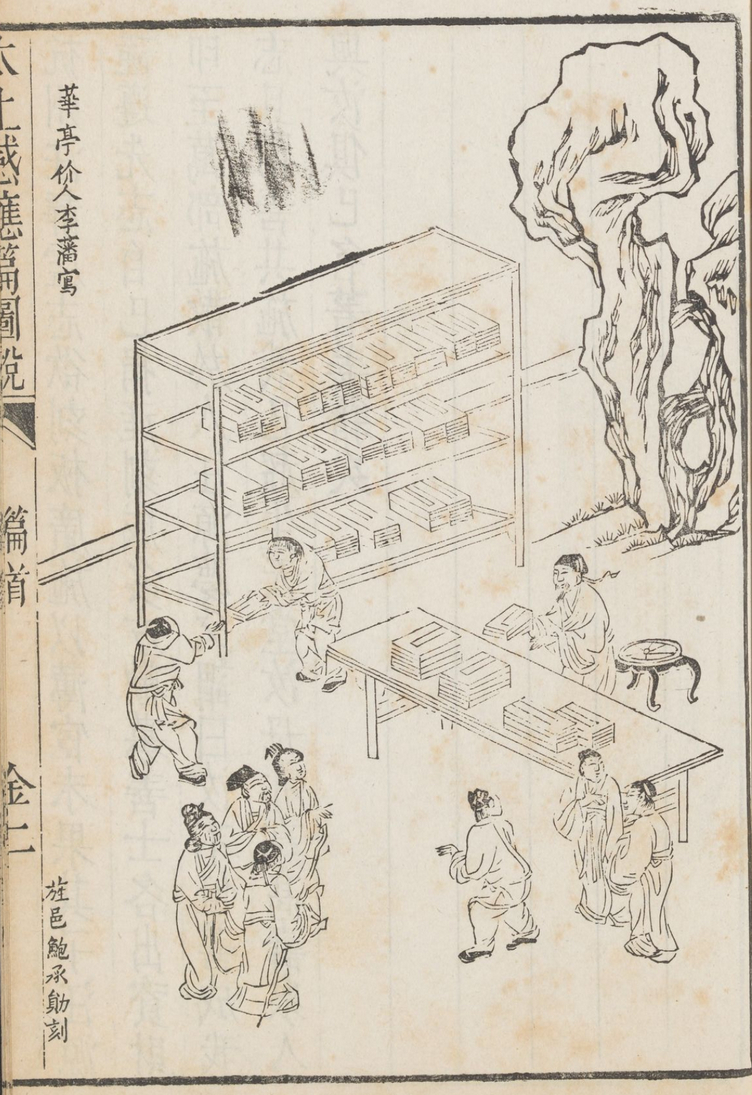 華亭价人李藩寫
太上感應篇圖說
篇首
金二
旌邑鮑承勛刻